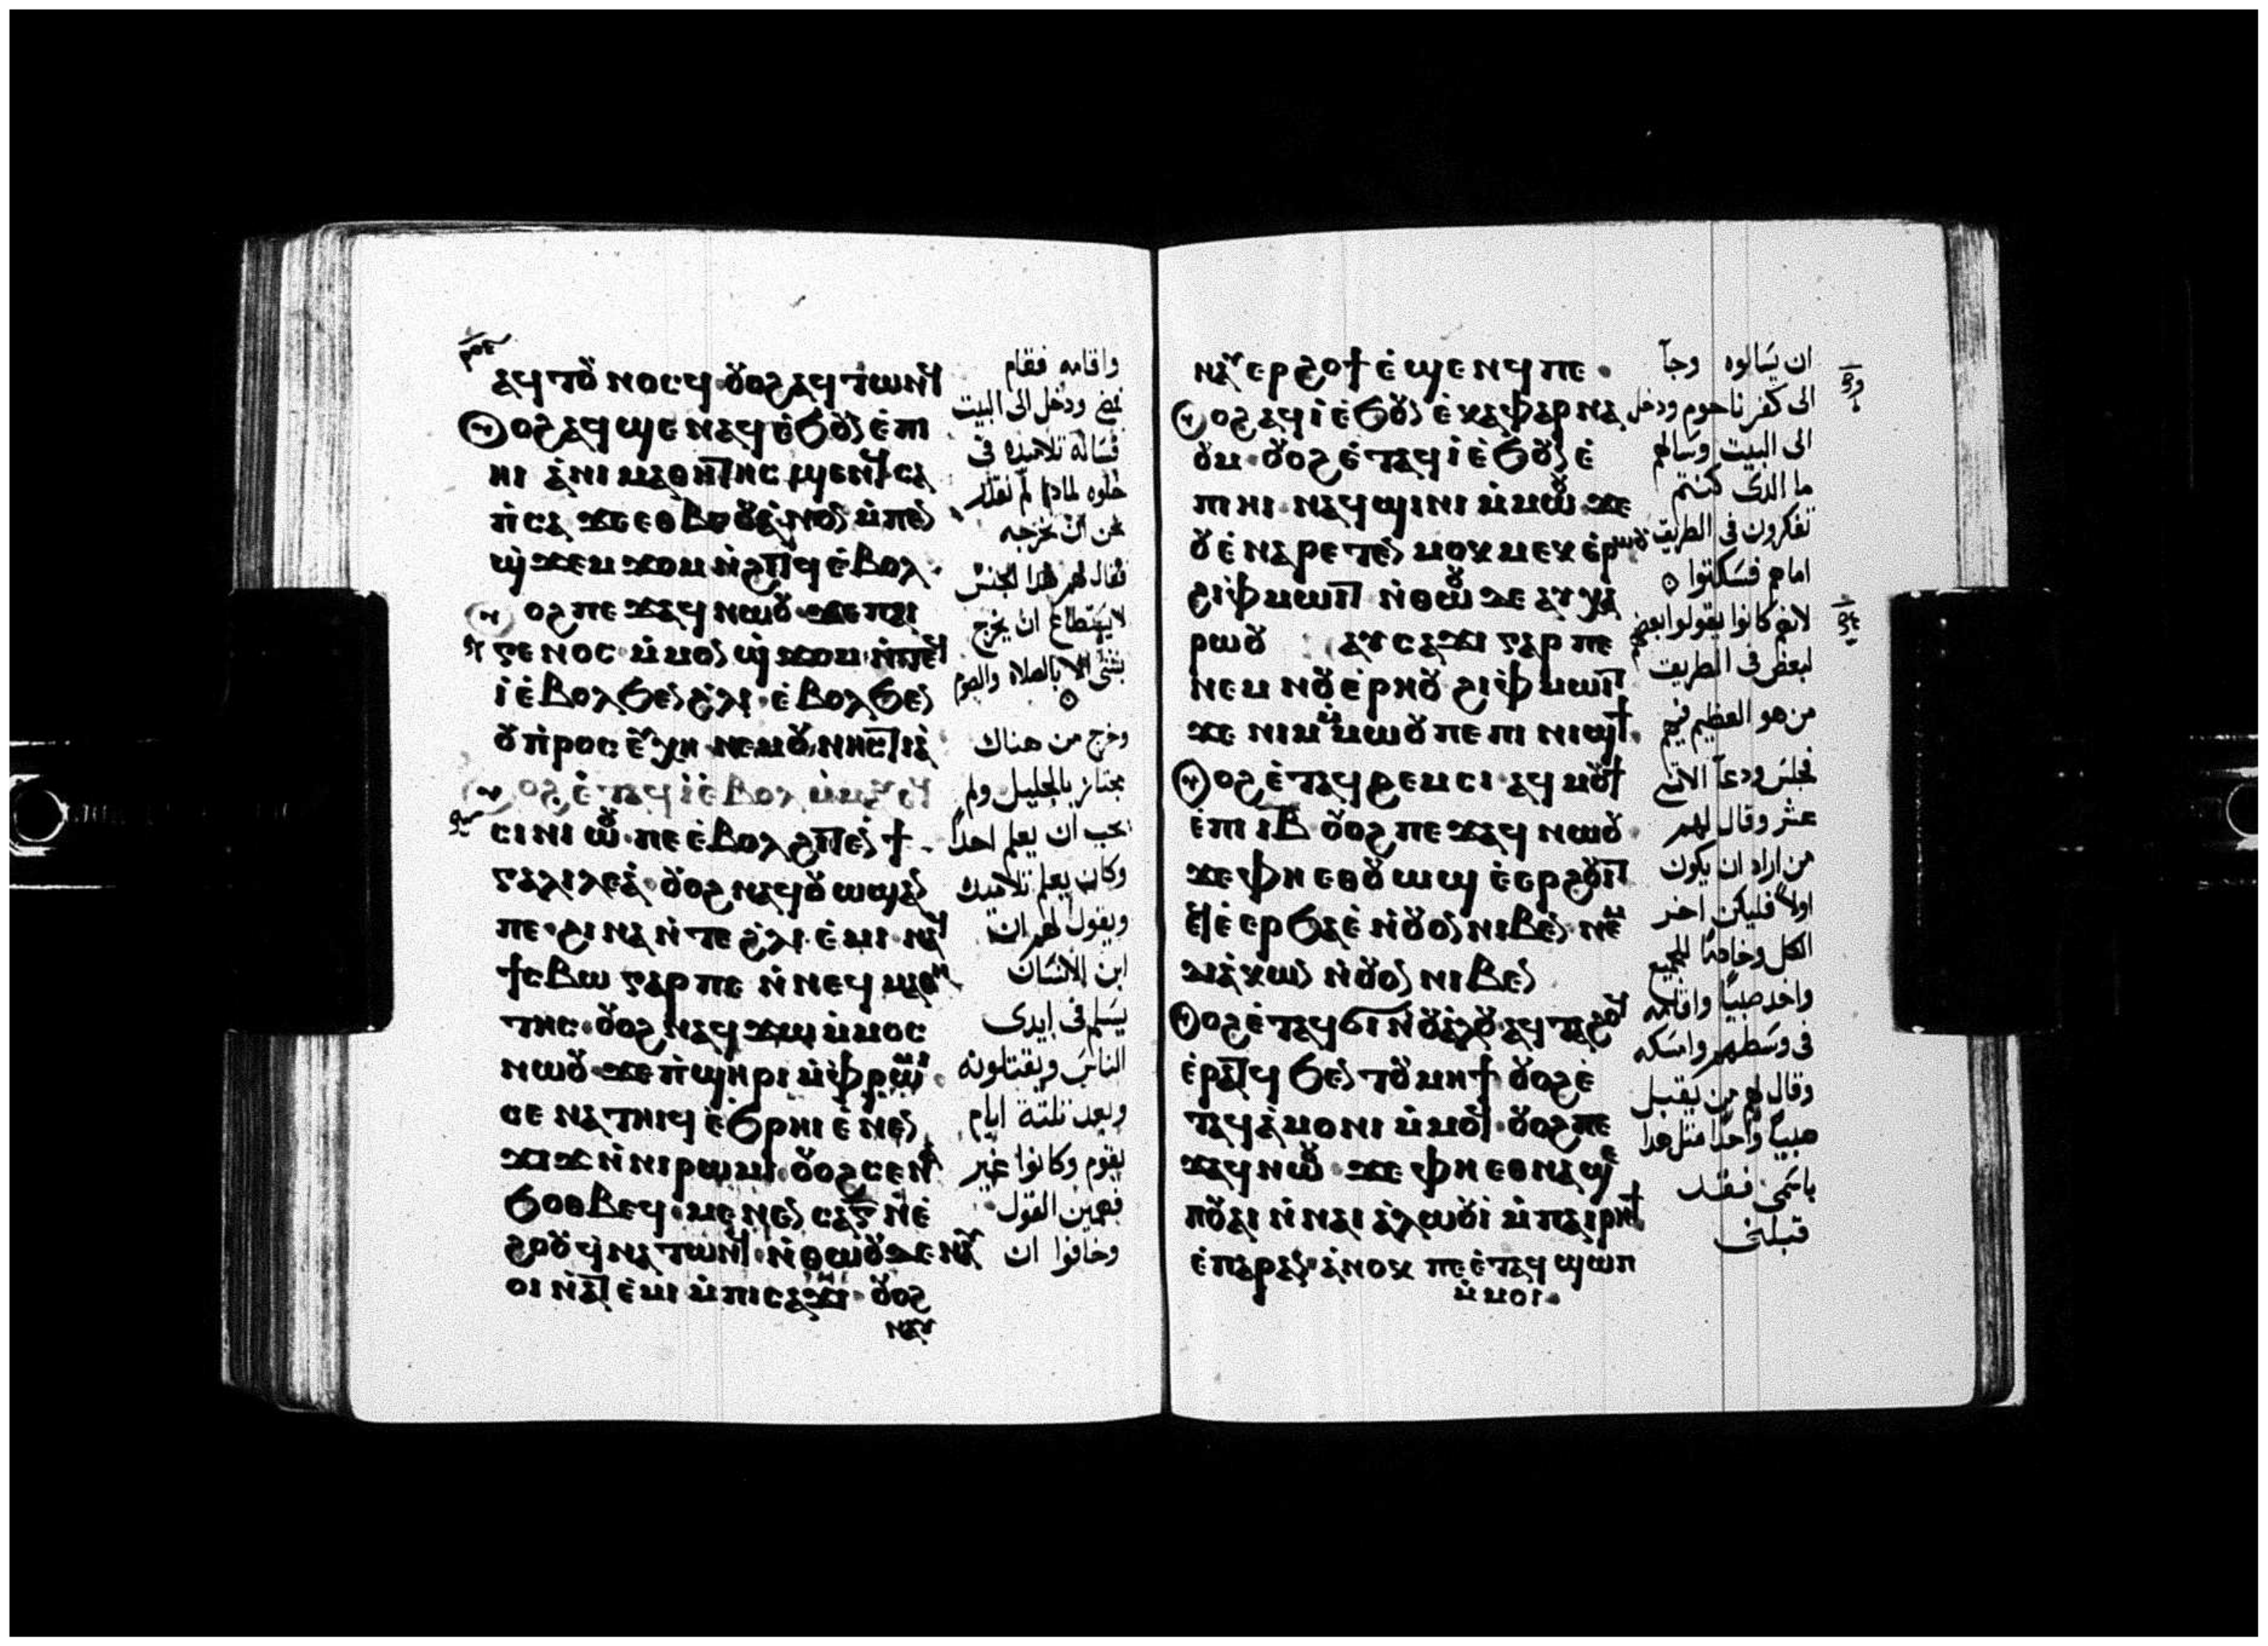 ⲁϥⲧⲟⲩⲛⲟⲥϥ ⲟⲩⲟϩ ⲁϥⲧⲱⲛϥ
ⲟϩ ⲁϥϣⲉ ⲛⲁϥ ⲉϧⲟⲩⲛ ⲉⲡⲓ
ⲏⲓ
ϫⲉⲙϫⲟⲙ ⲛϩⲓⲧϥ ⲉⲃⲟⲗ
ⲟϩ ⲡⲉϫⲁϥ ⲛⲱⲟⲩ ϫⲉ ⲡⲁⲓ
ⲅⲉⲛⲟⲥ ⲙⲙⲟⲛ ϣϫⲟⲙ
ⲓ ⲉⲃⲟⲗϧⲉⲛ ϩⲗⲓ ⲉⲃⲟⲗϧⲉⲛ
ⲟⲩⲡⲣⲟⲥⲉⲩⲭⲏ ⲛⲉⲙ ⲟⲩⲛⲏⲥⲧⲓⲁ
ⲥⲓⲛⲓⲱⲟⲩ ⲡⲉ ⲉⲃⲟⲗ ϩⲓⲧⲉⲛ ϯ
ⲅⲁⲗⲓⲗⲉⲁ ⲟⲩⲟϩ ⲛⲁϥⲟⲩⲱϣ ⲁⲛ
ⲡⲉ ϩⲓⲛⲁ ⲛⲧⲉ ϩⲗⲓ ⲉⲙⲓ ⲛⲁϥ
ϯⲥⲃⲱ ⲅⲁⲣ ⲡⲉ ⲛⲛⲉϥⲙⲁⲑⲏ
ⲧⲏⲥ ⲟⲩⲟϩ ⲛⲁϥϫⲱ ⲙⲙⲟⲥ
ⲛⲱⲟⲩ ϫⲉ ⲡϣⲏⲣⲓ ⲙⲫⲣⲱⲙⲓ
ⲥⲉⲛⲁⲧⲏⲓϥ ⲉϧⲣⲏⲓ ⲉⲛⲉⲛ
ϫⲓϫ ⲛⲛⲓⲣⲱⲙⲓ ⲟⲩⲟϩ ⲥⲉⲛⲁ
ϧⲟⲑⲃⲉϥ ⲙⲉⲛⲉⲛⲥⲁ ⲅ ⲛⲉ
ϩⲟⲟⲩ ϥⲛⲁⲧⲱⲛϥ ⲛⲑⲱⲟⲩ ⲇⲉ ⲛⲁⲩ
ⲟⲓ ⲛⲁⲧⲉⲙⲓ ⲙⲡⲓⲥⲁϫⲓ ⲟⲩⲟϩ
ⲛⲁⲩ
واقامه فقام
ودخل الى البيت
فساله تلاميذه فى
خلوه لماذا لم نقدر
نحن ان نخرجه
فقال لهم هدا الجنس
لا يستطاع ان يخرج
بشى الا بالصلاه والصوم
وخرج من هناك
مجتاز بالجليل ولم
يحب ان يعلم احدا
وكان يعلم تلاميذه
ويقول لهم ان
ابن الانسان
يسلم فى ايدى
الناس ويقتلونه
وبعد تلتة ايام
يقوم وكانوا غير
فهمين القول
وخافوا ان
ⲛⲁⲩⲉⲣϩⲟϯ ⲉϣⲉⲛϥ ⲡⲉ
ⲟϩ ⲁϥⲓ ⲉϧⲟⲩⲛ ⲉⲕⲁⲫⲁⲣⲛⲁ
ⲟⲩⲙ ⲟⲩⲟϩ ⲉⲧⲁϥⲓ ⲉϧⲟⲩⲛ ⲉ
ⲡⲓⲏⲓ ⲛⲁϥϣⲓⲛⲓ ⲙⲙⲱⲟⲩ ϫⲉ
ⲟⲩ ⲉⲛⲁⲣⲉⲧⲉⲛ ⲙⲟⲕⲙⲉⲕ ⲉⲣⲱⲟⲩ
ϩⲓ ⲫⲙⲱⲓⲧ ⲛⲑⲱⲟⲩ ⲇⲉ ⲁⲩⲭⲁ
ⲣⲱⲟⲩ ⲁⲩⲥⲁϫⲓ ⲅⲁⲣ ⲡⲉ
ⲛⲉⲙ ⲛⲟⲩⲉⲣⲏⲟⲩ ϩⲓ ⲫⲙⲱⲓⲧ
ϫⲉ ⲛⲓⲙ ⲙⲙⲱⲟⲩ ⲡⲉ ⲡⲓⲛⲓϣϯ
ⲟϩ ⲉⲧⲁϥϩⲉⲙⲥⲓ ⲁϥⲙⲟⲩϯ
ⲉⲡⲓ ⲓⲃ ⲟⲩⲟϩ ⲡⲉϫⲁϥ ⲛⲱⲟⲩ
ϫⲉ ⲫⲏ ⲉⲑⲟⲩⲱϣ ⲉⲉⲣϩⲟⲩⲓⲧ
ⲉϥⲉⲉⲣϧⲁⲉ ⲛⲟⲩⲟⲛ ⲛⲓⲃⲉⲛ ⲛⲉⲙ
ⲇⲓⲁⲕⲱⲛ ⲛⲟⲩⲟⲛ ⲛⲓⲃⲉⲛ
ⲟϩ ⲉⲧⲁϥϭⲓ ⲛⲟⲩⲁⲗⲟⲩ ⲁϥⲧⲁϩⲟϥ
ⲉⲣⲁⲧϥ ϧⲉⲛ ⲧⲟⲩⲙⲏϯ ⲟⲩⲟϩ ⲉ
ⲧⲁϥⲁⲙⲟⲛⲓ ⲙⲙⲟϥ ⲟⲩⲟϩ ⲡⲉ
ϫⲁϥ ⲛⲱⲟⲩ ϫⲉ ⲫⲏ ⲉⲑⲛⲁϣⲉ
ⲡ ⲟⲩⲁⲓ ⲛⲛⲁⲓ ⲁⲗⲱⲟⲩⲓ ⲙⲡⲁⲓⲣⲏϯ
ⲉⲡⲁⲣⲁⲛ ⲁⲛⲟⲕ ⲡⲉⲧⲁϥϣⲱⲡ
ⲙⲙⲟⲓ
ان يسالوه وجآ
الى كفرناحوم ودخل
الى البيت وسالهم
ما الدى كنتم
تفكرون فى الطريق
امام فسكتوا
لانهم كانوا يقولوا بعضهم
لبعض فى الطريق
من هو العظيم فيهم
فجلس ودعا الاتنى
عشر وقال لهم
من اراد ان يكون
اولا فليكن اخر
الكل وخادما للجميع
واخد صبيا واقامه
فى وسطهم وامسكه
وقال لهم من يقبل
صبيا واحدا متل هدا
باسمى فقد
قبلنى